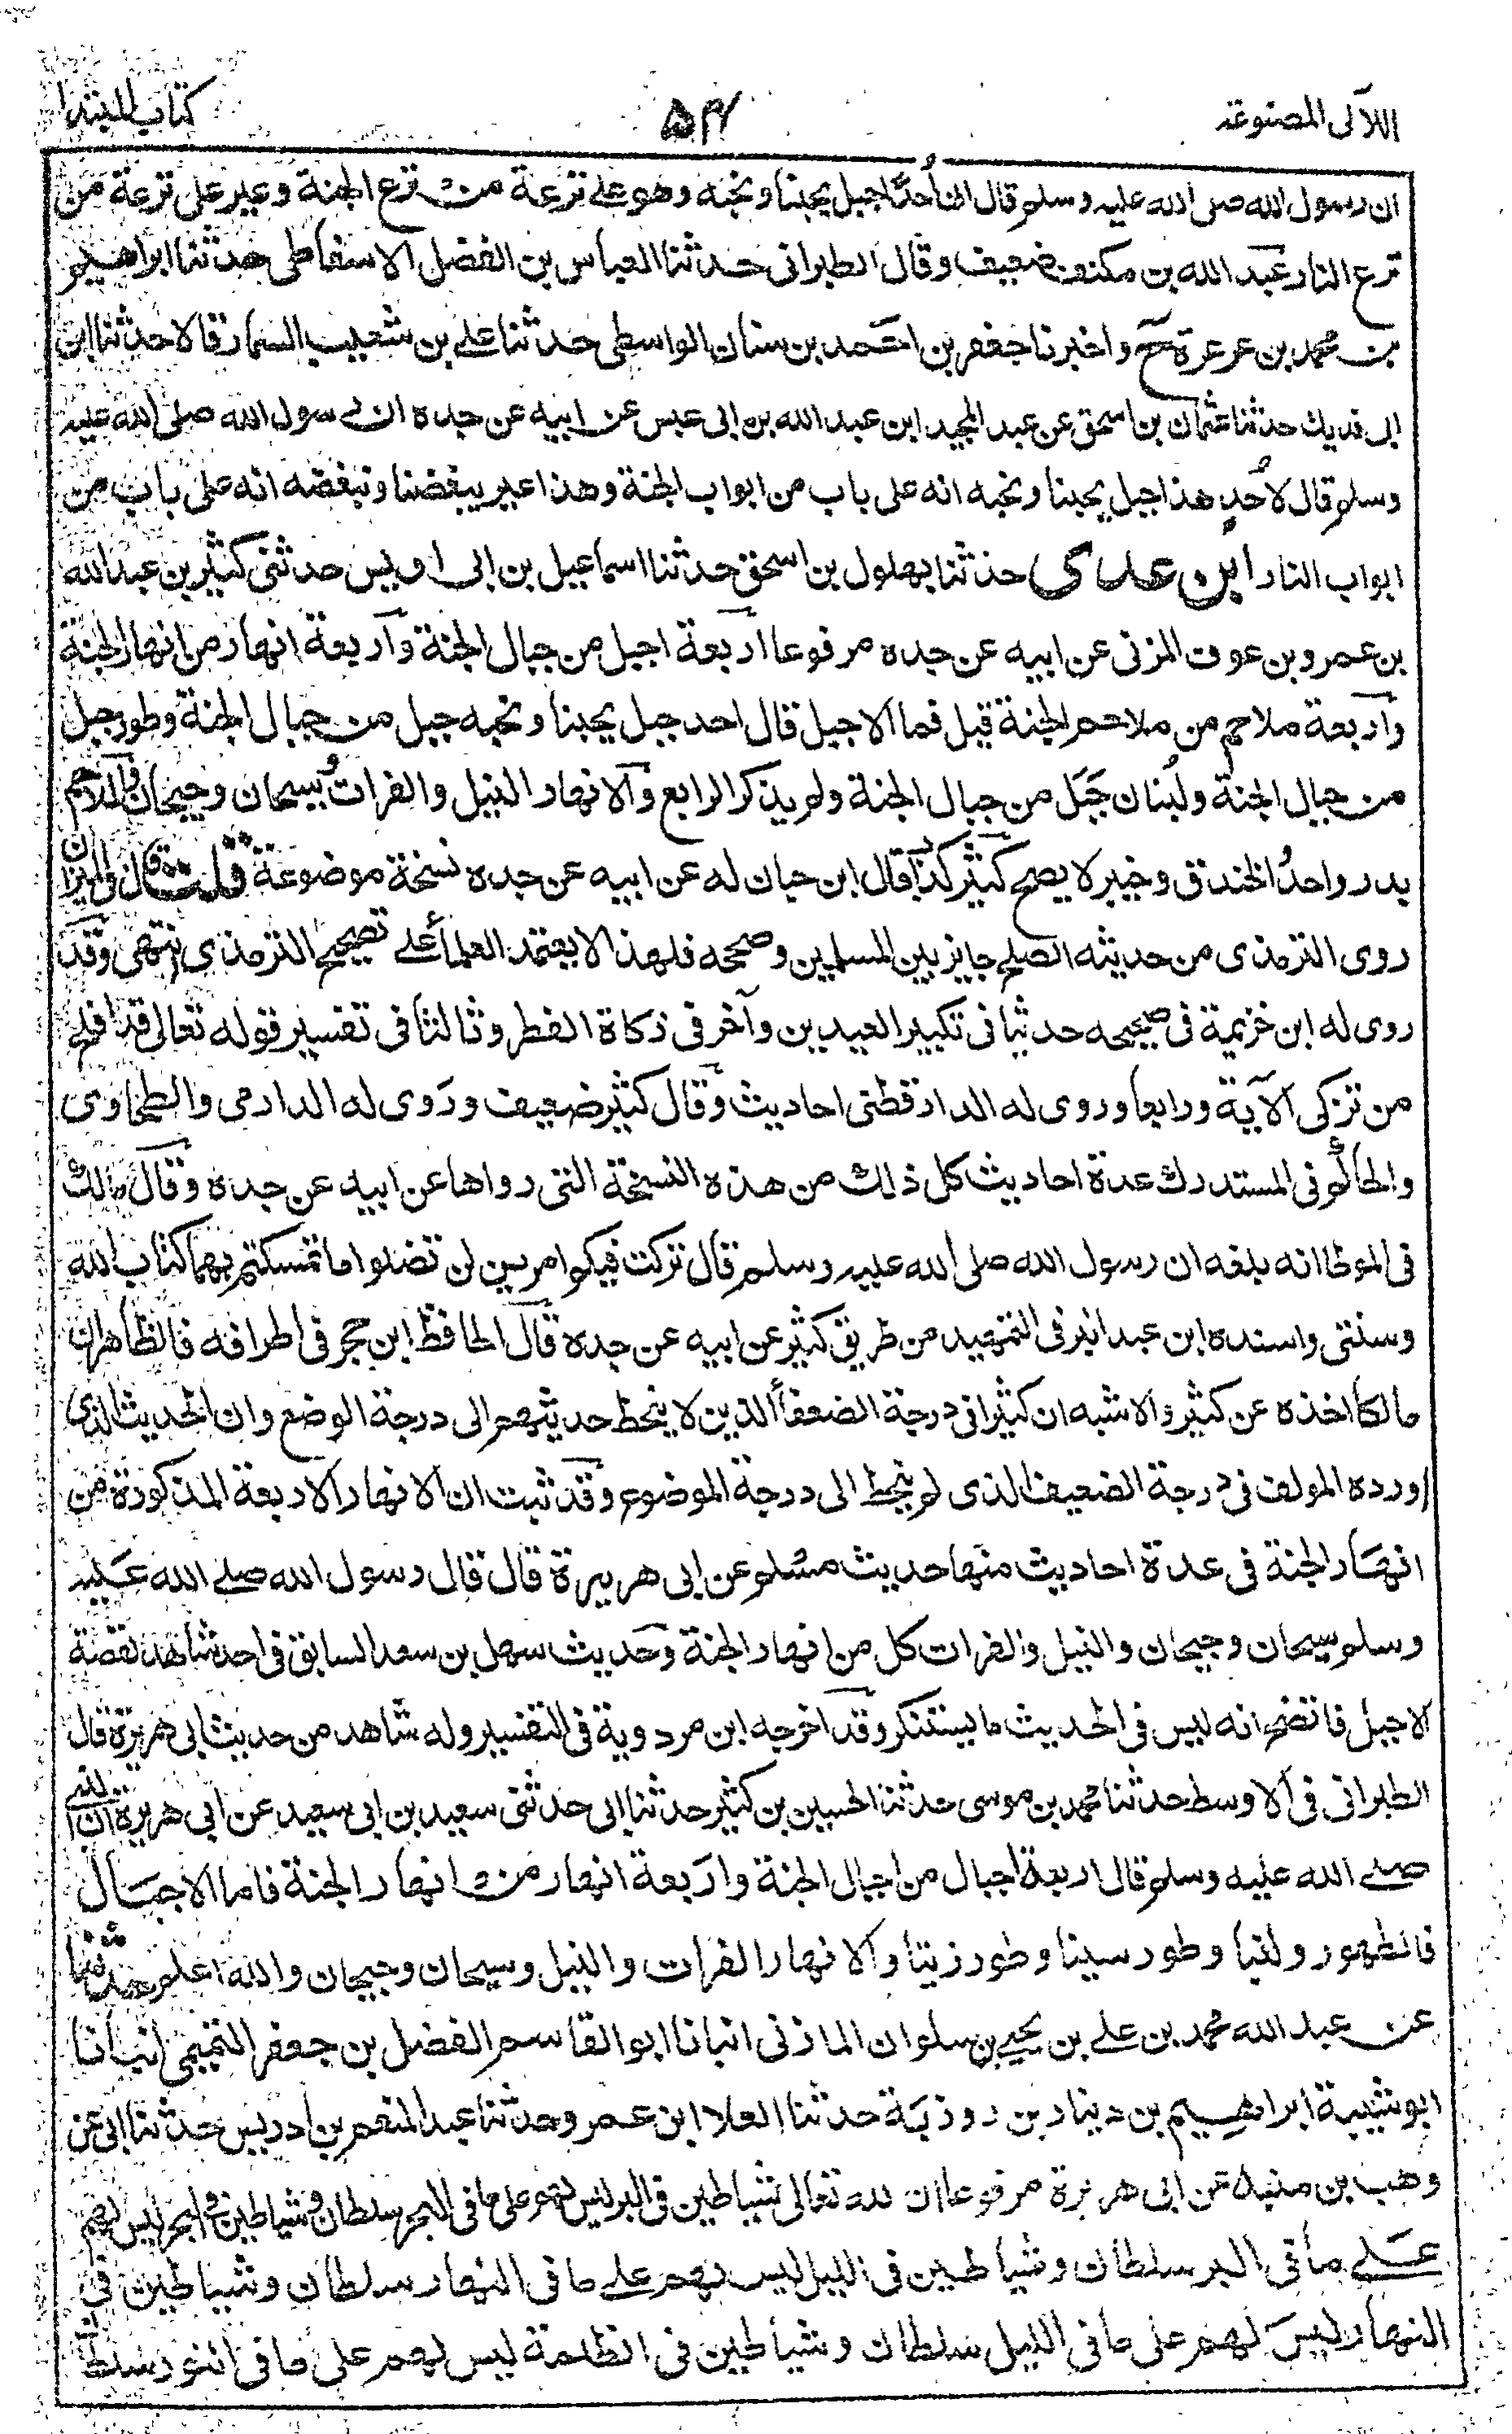 اللآلى المصنوعة
۵۴
كتاب المبتدا
ان رسول الله صلى الله عليه وسلم قال ان اُحُدًا جبل يحبنا ونحبه وهو على ترعة من ترع الجنة وعير على ترعة من
ترع النار عبد الله بن مكنف ضعيف وقال الطبرانى حدثنا العباس بن الفضل الاسفاطى حدثنا ابراهيم
بن محمد بن عرعرة ح واخبرنا جعفر بن احمد بن سنان الواسطى حدثنا على بن شعيب السمار قالا حدثنا ابن
ابى فديك حدثنا عثمان بن اسحق عن عبد المجيد ابن عبد الله بن ابى عبس عن ابيه عن جده ان رسول الله صلى الله عليه
وسلم قال لاُحُدٍ هذا جبل يحبنا ونحبه انه على باب من ابواب الجنة وهذا عير يبغضنا ونبغضه انه على باب من
ابواب النار ابن عدى حدثنا بهلول بن اسحق حدثنا اسماعيل بن ابى اويس حدثنى كثير بن عبد الله
بن عمرو بن عوف المزنى عن ابيه عن جده مرفوعا اربعة اجبل من جبال الجنة واربعة انهار من انهار الجنة
واربعة ملاحم من ملاحم الجنة قيل فما الاجبل قال احد جبل يحبنا ونحبه جبل من جبال الجنة وطور جبل
من جبال الجنة ولُبنان جَبَل من جبال الجنة ولم يذكر الرابع والانهار النيل والفرات وسيحان وجيحان والملاحم
بدر واحدُ الخندق وخيبر لا يصح كثير كذاب قال ابن حبان له عن ابيه عن جده نسخة موضوعة قلت قال فى الميزان
روى الترمذى من حديثه الصلح جايز بين المسلمين وصححه فلهذا لا يعتمد العلماء على تصحيح الترمذى انتهى وقد
روى له ابن خزيمة فى صحيحه حديثا فى تكبير العيدين وآخر فى زكاة الفطر وثالثا فى تفسير قوله تعالى قد افلح
من تزكى الآية ورابعا وروى له الدارقطنى احاديث وقال كثير ضعيف وروى له الدارمى والطحاوى
والحاكم فى المستدرك عدة احاديث كل ذلك من هذه النسخة التى رواها عن ابيه عن جده وقال مالك
فى الموطا انه بلغه ان رسول الله صلى الله عليه وسلم قال تركت فيكم امرين لن تضلوا ما تمسكتم بهما كتاب الله
وسنتى واسنده ابن عبد البر فى التمهيد من طريق كثير عن ابيه عن جده قال الحافظ ابن حجر فى اطرافه فالظاهر ان
مالكا اخذه عن كثير والاشبه ان كثيرا فى درجة الضعفاء الذين لا ينحط حديثهم الى درجة الوضع وان الحديث الذى
اورده المولف فى درجة الضعيف الذى لم ينحط الى درجة الموضوع وقد ثبت ان الانهار الاربعة المذكورة من
انهار الجنة فى عدة احاديث منها حديث مسلم عن ابى هريرة قال قال رسول الله صلى الله عليه
وسلم سيحان وجيحان والنيل والفرات كل من انهار الجنة وحديث سهل بن سعد السابق فى احد شاهد لقصة
الاجبل فاتضح انه ليس فى الحديث ما يستنكر وقد اخرجه ابن مردوية فى التفسير وله شاهد من حديث ابى هريرة قال
الطبرانى فى الاوسط حدثنا محمد بن موسى حدثنا الحسين بن كثير حدثنا ابى حدثنى سعيد بن ابى سعيد عن ابى هريرة ان النبى
صلى الله عليه وسلم قال اربعة اجبال من اجبال الجنة واربعة انهار من انهار الجنة فاما الاجبال
فالطهور ولبنا وطور سينا وطور زيتا والانهار الفرات والنيل وسيحان وجيحان والله اعلم حدثنا
عن عبد الله محمد بن على بن يحيى بن سلوان المازنى انبانا ابو القاسم الفضل بن جعفر التميمى انبانا
ابو شيبة ابراهيم بن دينار بن روزبة حدثنا العلا ابن عمر وحدثنا عبد المنعم بن ادريس حدثنا ابى عن
وهب بن منبه عن ابى هريرة مرفوعا ان لله تعالى شياطين فى البر ليس لهم على ما فى البحر سلطان وشياطين فى البحر ليس لهم
على ما فى البر سلطان وشياطين فى الليل ليس لهم على ما فى النهار سلطان وشياطين فى
النهار ليس لهم على ما فى الليل سلطان وشياطين فى الظلمة ليس لهم على ما فى النور سلطان